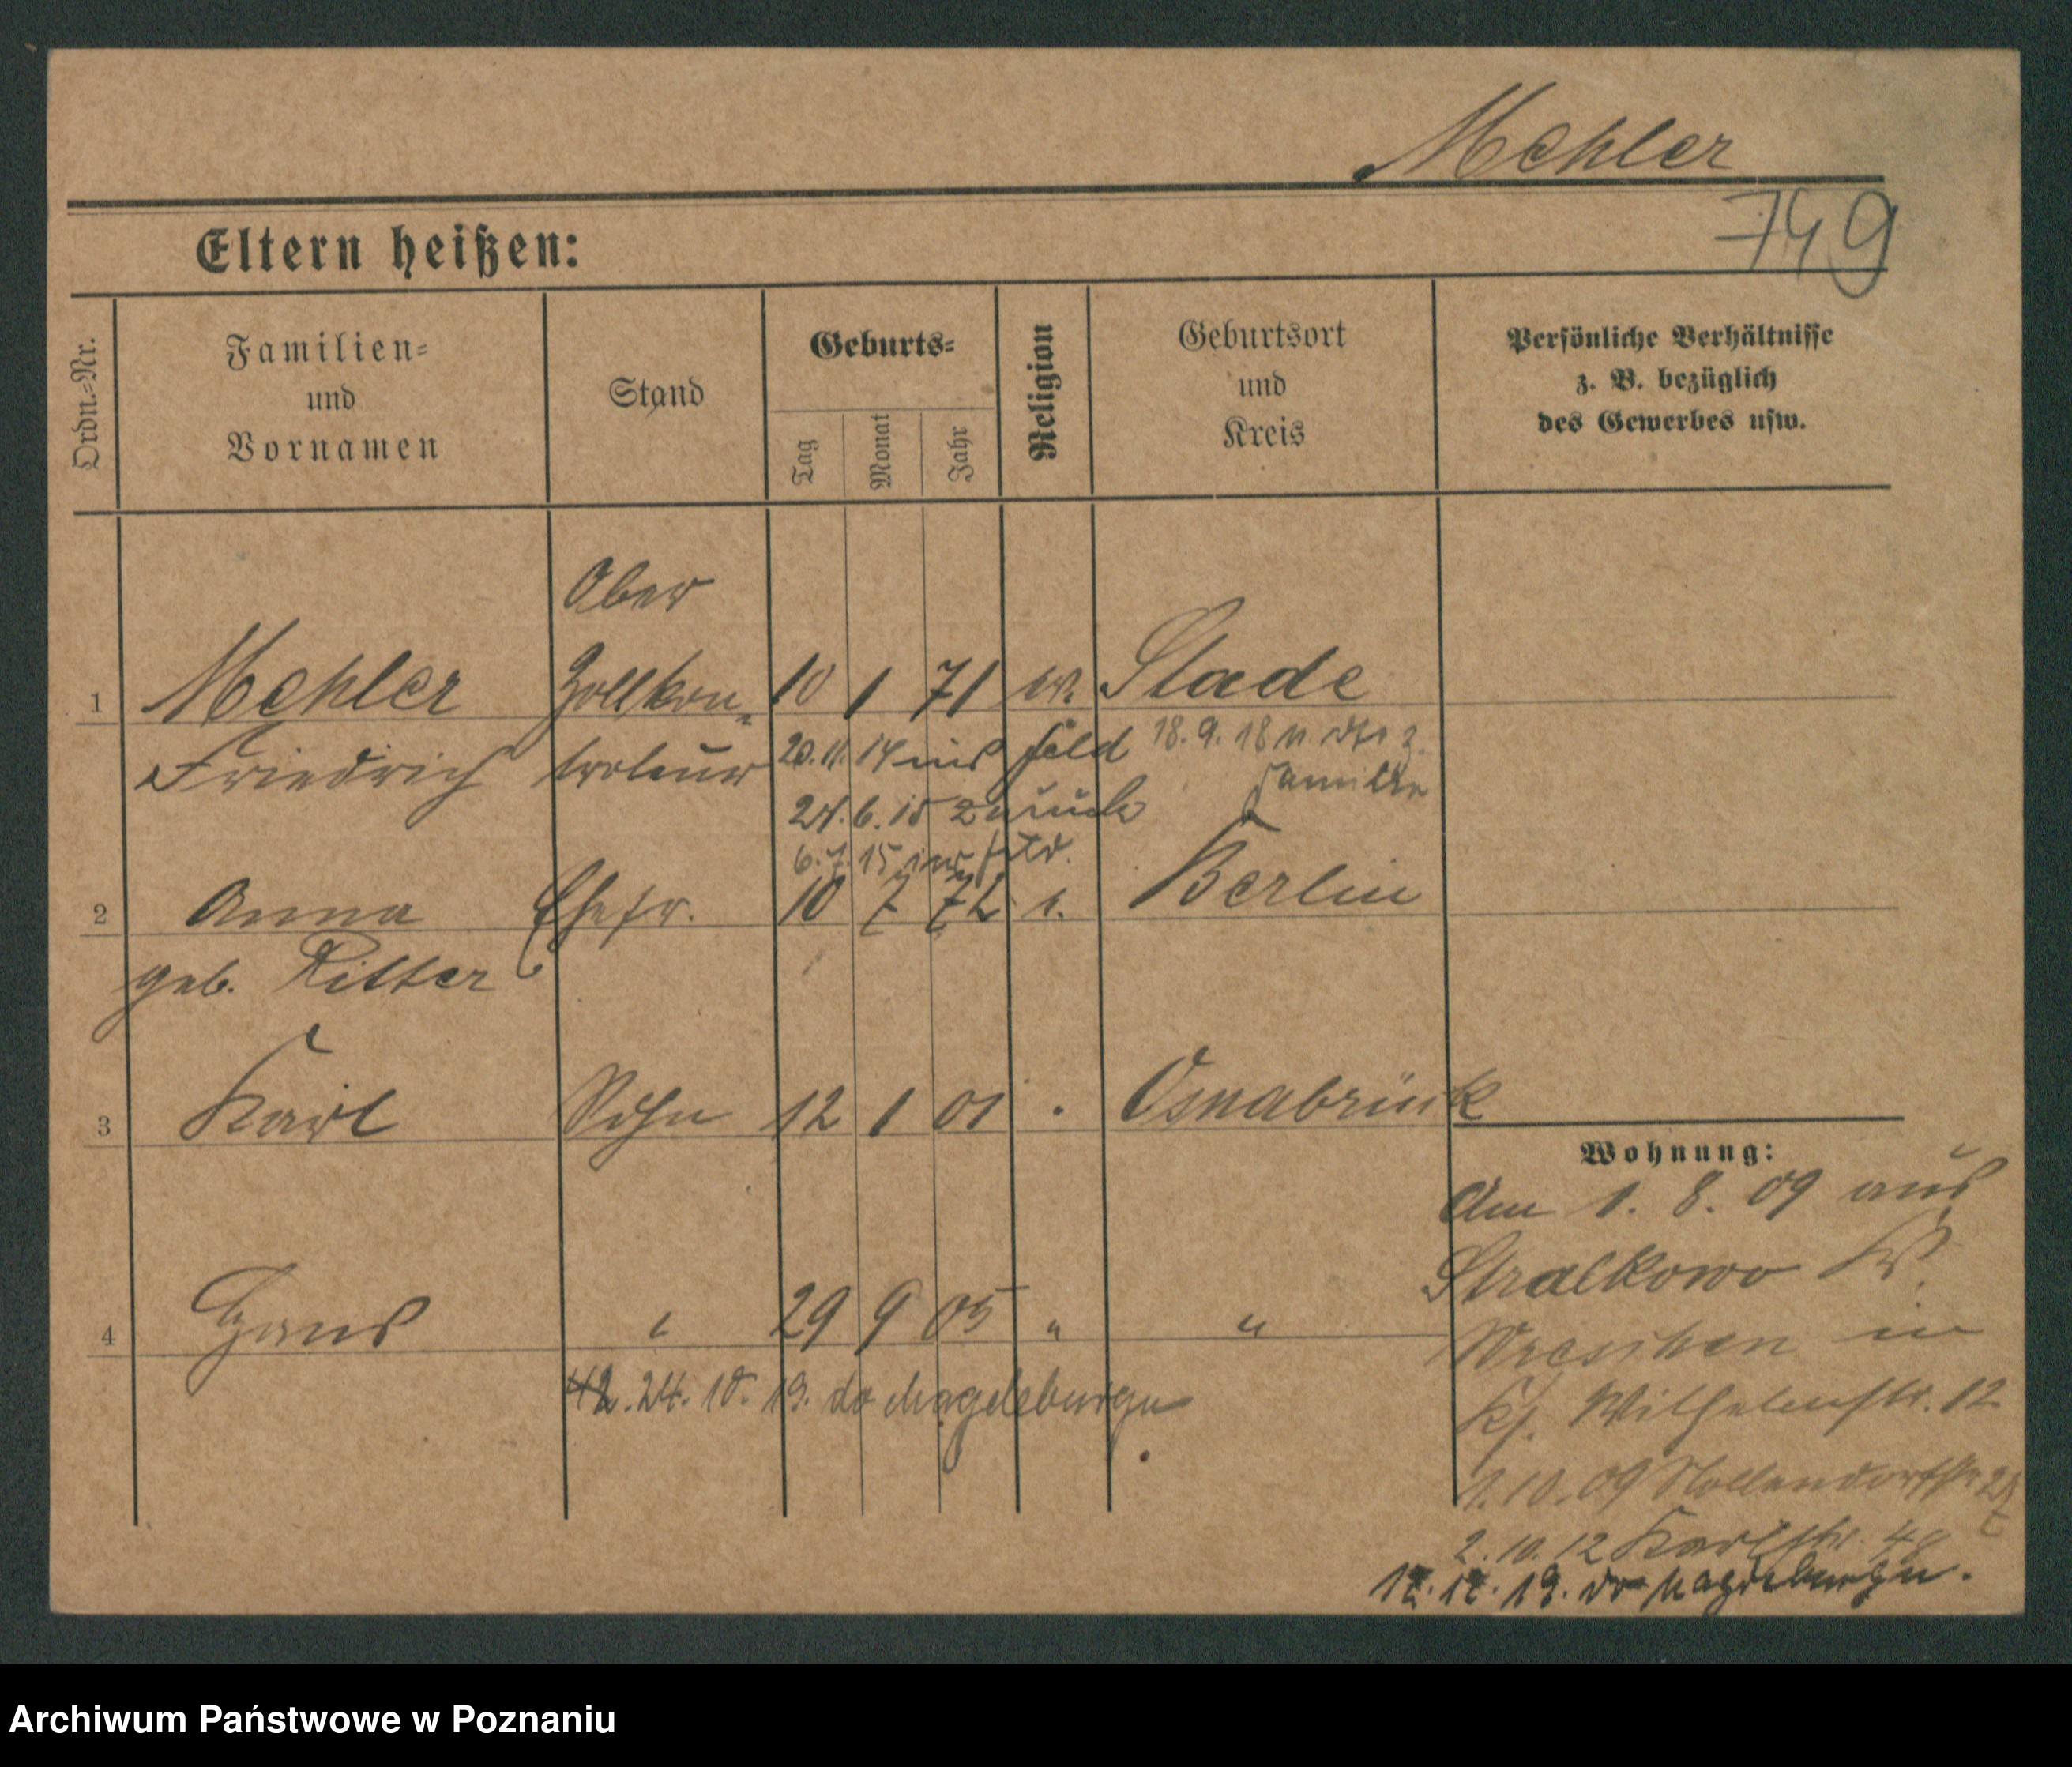 Mehler
749
Eltern heißen:
Ordn.-Nr.
Familien-
und
Vornamen
Stand
Geburts-
Tag
Monat
Jahr
Religion
Geburtsort
und
Kreis
Persönliche Verhältnisse
z. B. bezüglich
des Gewerbes usw.
Ober
1 Mehler Zollkon- 10 1 71 ev. Stade
Friedrich troleur 20. 11. 14 ins Feld 18. 9. 18 z.
Familie
24. 6. 15 zurück
6. 7. 15 ins Feld.
2 Anna Ehefr. 10 7 72 e. Berlin
geb. Ritter
3 Karl Sohn 12 1 01 Osnabrück
Wohnung:
Am 1. 8. 09 aus
Stralkowo Kr.
Wreschen in
4 Hans " 29 9 05 " "
24. 10. 19. do Magdeburga
Wilhelmstr. 12
1. 10. 09 Nollendorfstr.
2. 10. 12 Karlstr.
19. do Magdeburga.
Archiwum Państwowe w Poznaniu